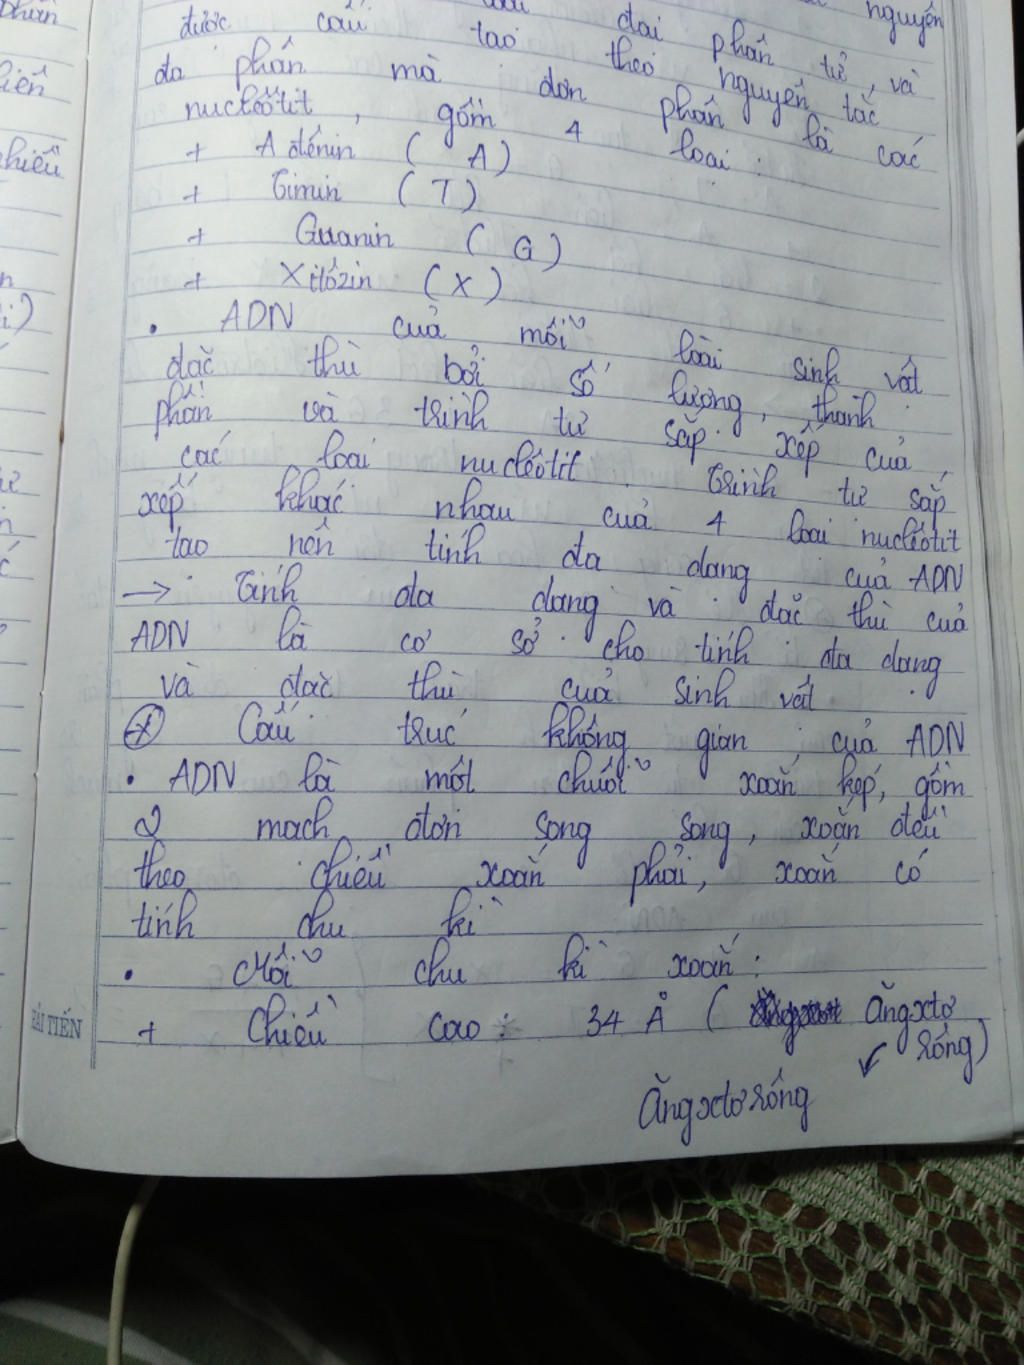 phân
nguyên
được cấu tạo đại phân tử, và
đa phân mà theo nguyên tắc
nuclêôtit, gồm đơn phân là các
4 loại:
+ Ađênin (A)
+ Timin (T)
+ Guanin (G)
+ Xitôzin (X)
• ADN của mỗi loài sinh vật
đặc thù bởi số lượng, thành
phần và trình tự sắp xếp của
các loại nuclêôtit. Trình tự sắp
xếp khác nhau của 4 loại nuclêôtit
tạo nên tính đa dạng của ADN
→ Tính đa dạng và đặc thù của
ADN là cơ sở cho tính đa dạng
và đặc thù của sinh vật.
* Cấu trúc không gian của ADN
• ADN là một chuỗi xoắn kép, gồm
2 mạch đơn song song, xoắn đều
theo chiều xoắn phải, xoắn có
tính chu kì
• Mỗi chu kì xoắn:
+ Chiều cao: 34 Å (Ăngxtơ
rông)
Ăngxtơrông
HẢI TIẾN